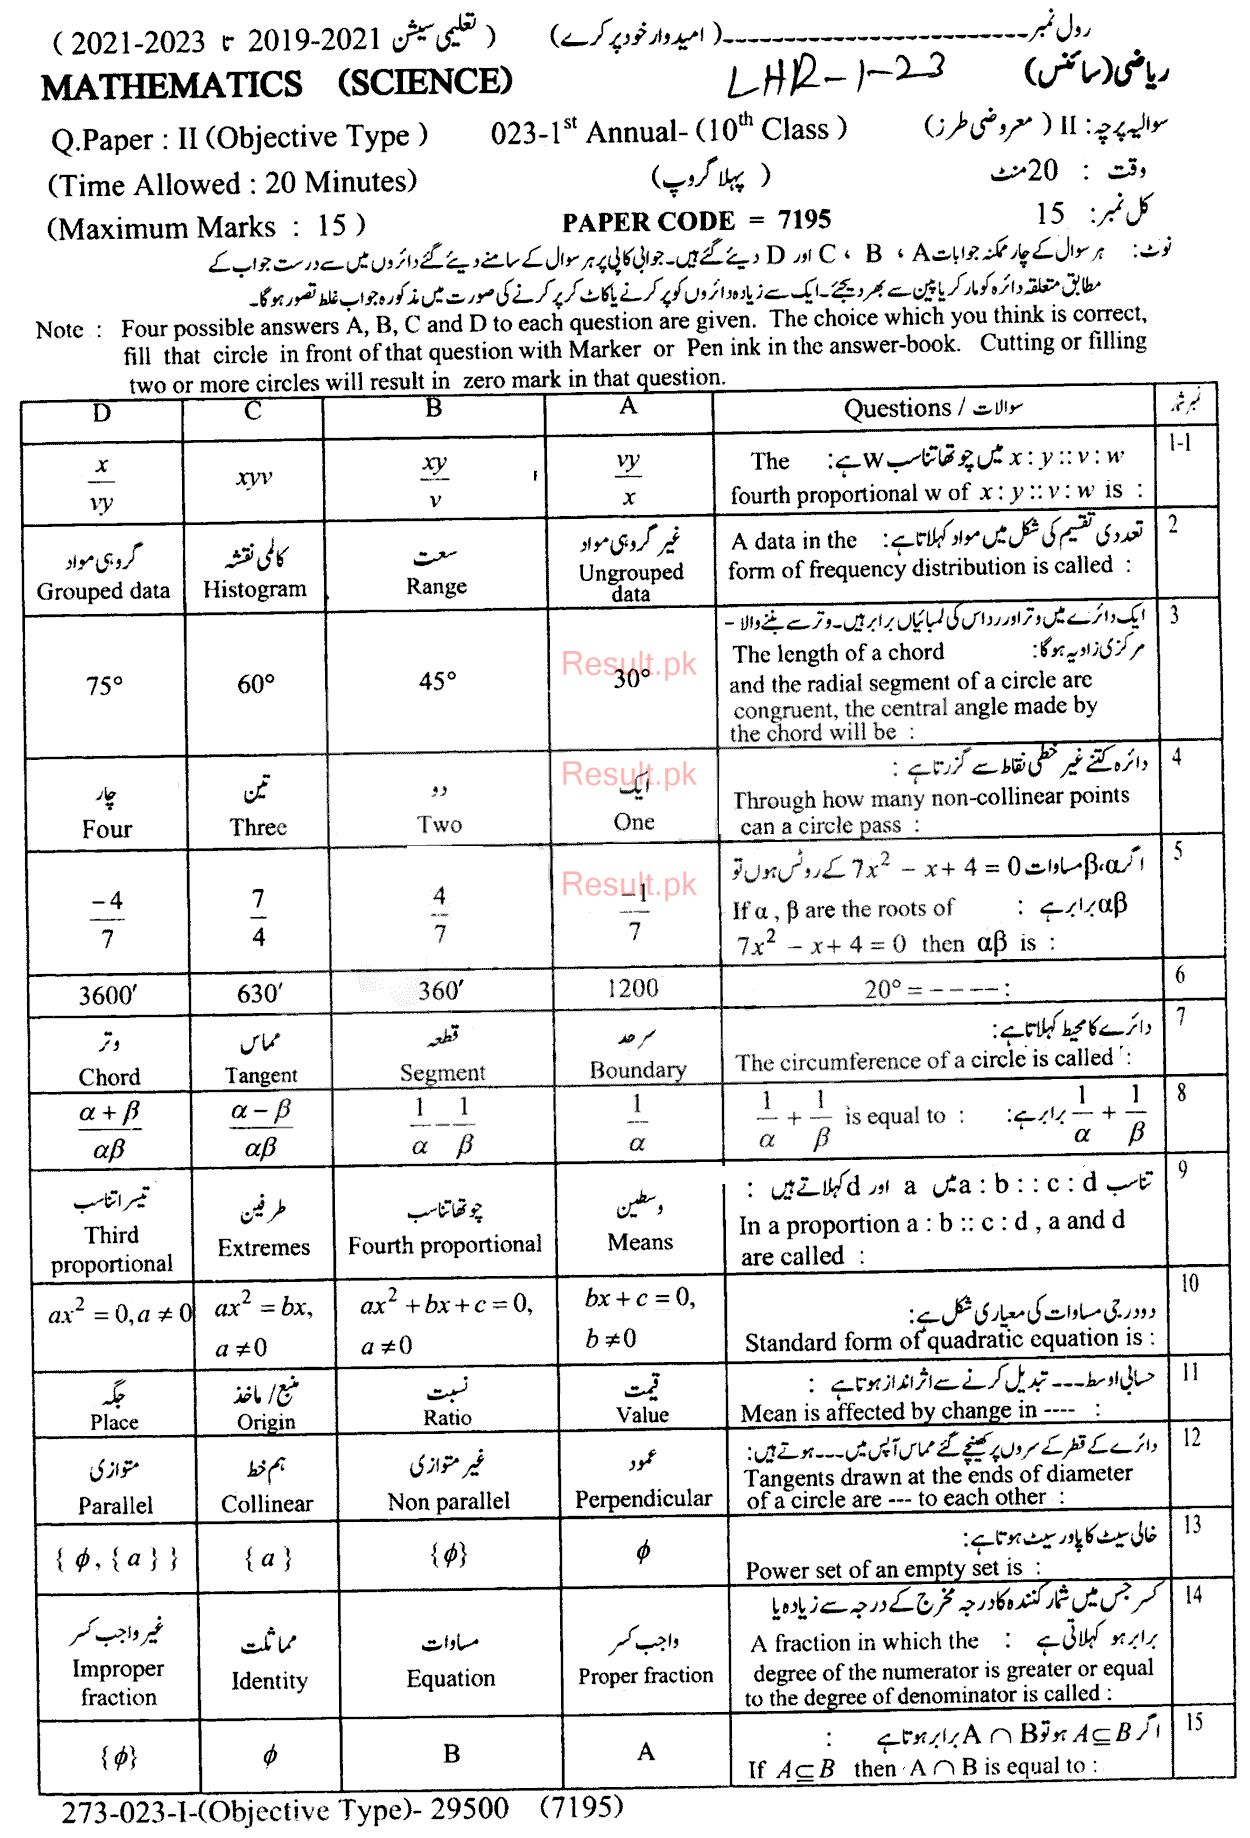 رول نمبر ------------------------( امیدوار خود پر کرے) ( تعلیمی سیشن 2019-2021 تا 2021-2023 )
ریاضی (سائنس) LHR-1-23 MATHEMATICS (SCIENCE)
Q.Paper : II (Objective Type ) 023-1st Annual- (10th Class ) سوالیہ پرچہ : II ( معروضی طرز )
(Time Allowed : 20 Minutes) ( پہلا گروپ ) وقت : 20 منٹ
(Maximum Marks : 15 ) PAPER CODE = 7195 کل نمبر : 15
نوٹ : ہر سوال کے چار ممکنہ جوابات A ، B ، C اور D دیئے گئے ہیں۔ جوابی کاپی پر ہر سوال کے سامنے دیئے گئے دائروں میں سے درست جواب کے
مطابق متعلقہ دائرہ کو مارکر یا پین سے بھر دیجئے۔ ایک سے زیادہ دائروں کو پر کرنے یا کاٹ کر پر کرنے کی صورت میں مذکورہ جواب غلط تصور ہوگا۔
Note : Four possible answers A, B, C and D to each question are given. The choice which you think is correct,
fill that circle in front of that question with Marker or Pen ink in the answer-book. Cutting or filling
two or more circles will result in zero mark in that question.
D C B A Questions / سوالات نمبر شمار
1-1 x : y :: v : w میں چوتھا تناسب w ہے: The
fourth proportional w of x : y :: v : w is :
x/vy xyv xy/v vy/x
2 تعددی تقسیم کی شکل میں مواد کہلاتا ہے: A data in the
form of frequency distribution is called :
گروہی مواد کالمی نقشہ سعت غیر گروہی مواد
Grouped data Histogram Range Ungrouped
data
3 ایک دائرے میں وتر اور رداس کی لمبائیاں برابر ہیں۔ وتر سے بننے والا -
مرکزی زاویہ ہوگا: The length of a chord
and the radial segment of a circle are
congruent, the central angle made by
the chord will be :
75° 60° 45° 30°
Result.pk
4 دائرہ کتنے غیر خطی نقاط سے گزرتا ہے :
Through how many non-collinear points
can a circle pass :
چار تین دو ایک
Four Three Two One
Result.pk
5 اگر α،β مساوات 7x² − x + 4 = 0 کے روٹس ہوں تو
αβ برابر ہے : If α , β are the roots of
7x² − x + 4 = 0 then αβ is :
−4/7 7/4 4/7 −1/7
Result.pk
6 20° = − − − − :
3600′ 630′ 360′ 1200
7 دائرے کا محیط کہلاتا ہے:
The circumference of a circle is called :
وتر مماس قطعہ سرحد
Chord Tangent Segment Boundary
8 1/α + 1/β برابر ہے: 1/α + 1/β is equal to :
α + β/αβ α − β/αβ 1/α − 1/β 1/α
9 تناسب a : b : : c : d میں a اور d کہلاتے ہیں :
In a proportion a : b :: c : d , a and d
are called :
تیسرا تناسب طرفین چوتھا تناسب وسطین
Third
proportional Extremes Fourth proportional Means
10 دو درجی مساوات کی معیاری شکل ہے:
Standard form of quadratic equation is :
ax² = 0, a ≠ 0 ax² = bx, ax² + bx + c = 0, bx + c = 0,
a ≠ 0 a ≠ 0 b ≠ 0
11 حسابی اوسط --- تبدیل کرنے سے اثر انداز ہوتا ہے :
Mean is affected by change in ---- :
جگہ منبع/ ماخذ نسبت قیمت
Place Origin Ratio Value
12 دائرے کے قطر کے سروں پر کھینچے گئے مماس آپس میں --- ہوتے ہیں:
Tangents drawn at the ends of diameter
of a circle are --- to each other :
متوازی ہم خط غیر متوازی عمود
Parallel Collinear Non parallel Perpendicular
13 خالی سیٹ کا پاور سیٹ ہوتا ہے:
Power set of an empty set is :
{ ϕ , { a } } { a } {ϕ} ϕ
14 کسر جس میں شمار کنندہ کا درجہ مخرج کے درجہ سے زیادہ یا
برابر ہو کہلاتی ہے : A fraction in which the
degree of the numerator is greater or equal
to the degree of denominator is called :
غیر واجب کسر مماثلت مساوات واجب کسر
Improper
fraction Identity Equation Proper fraction
15 اگر A⊆B ہو تو A ∩ B برابر ہوتا ہے :
If A⊆B then A ∩ B is equal to :
{ϕ} ϕ B A
273-023-I-(Objective Type)- 29500 (7195)